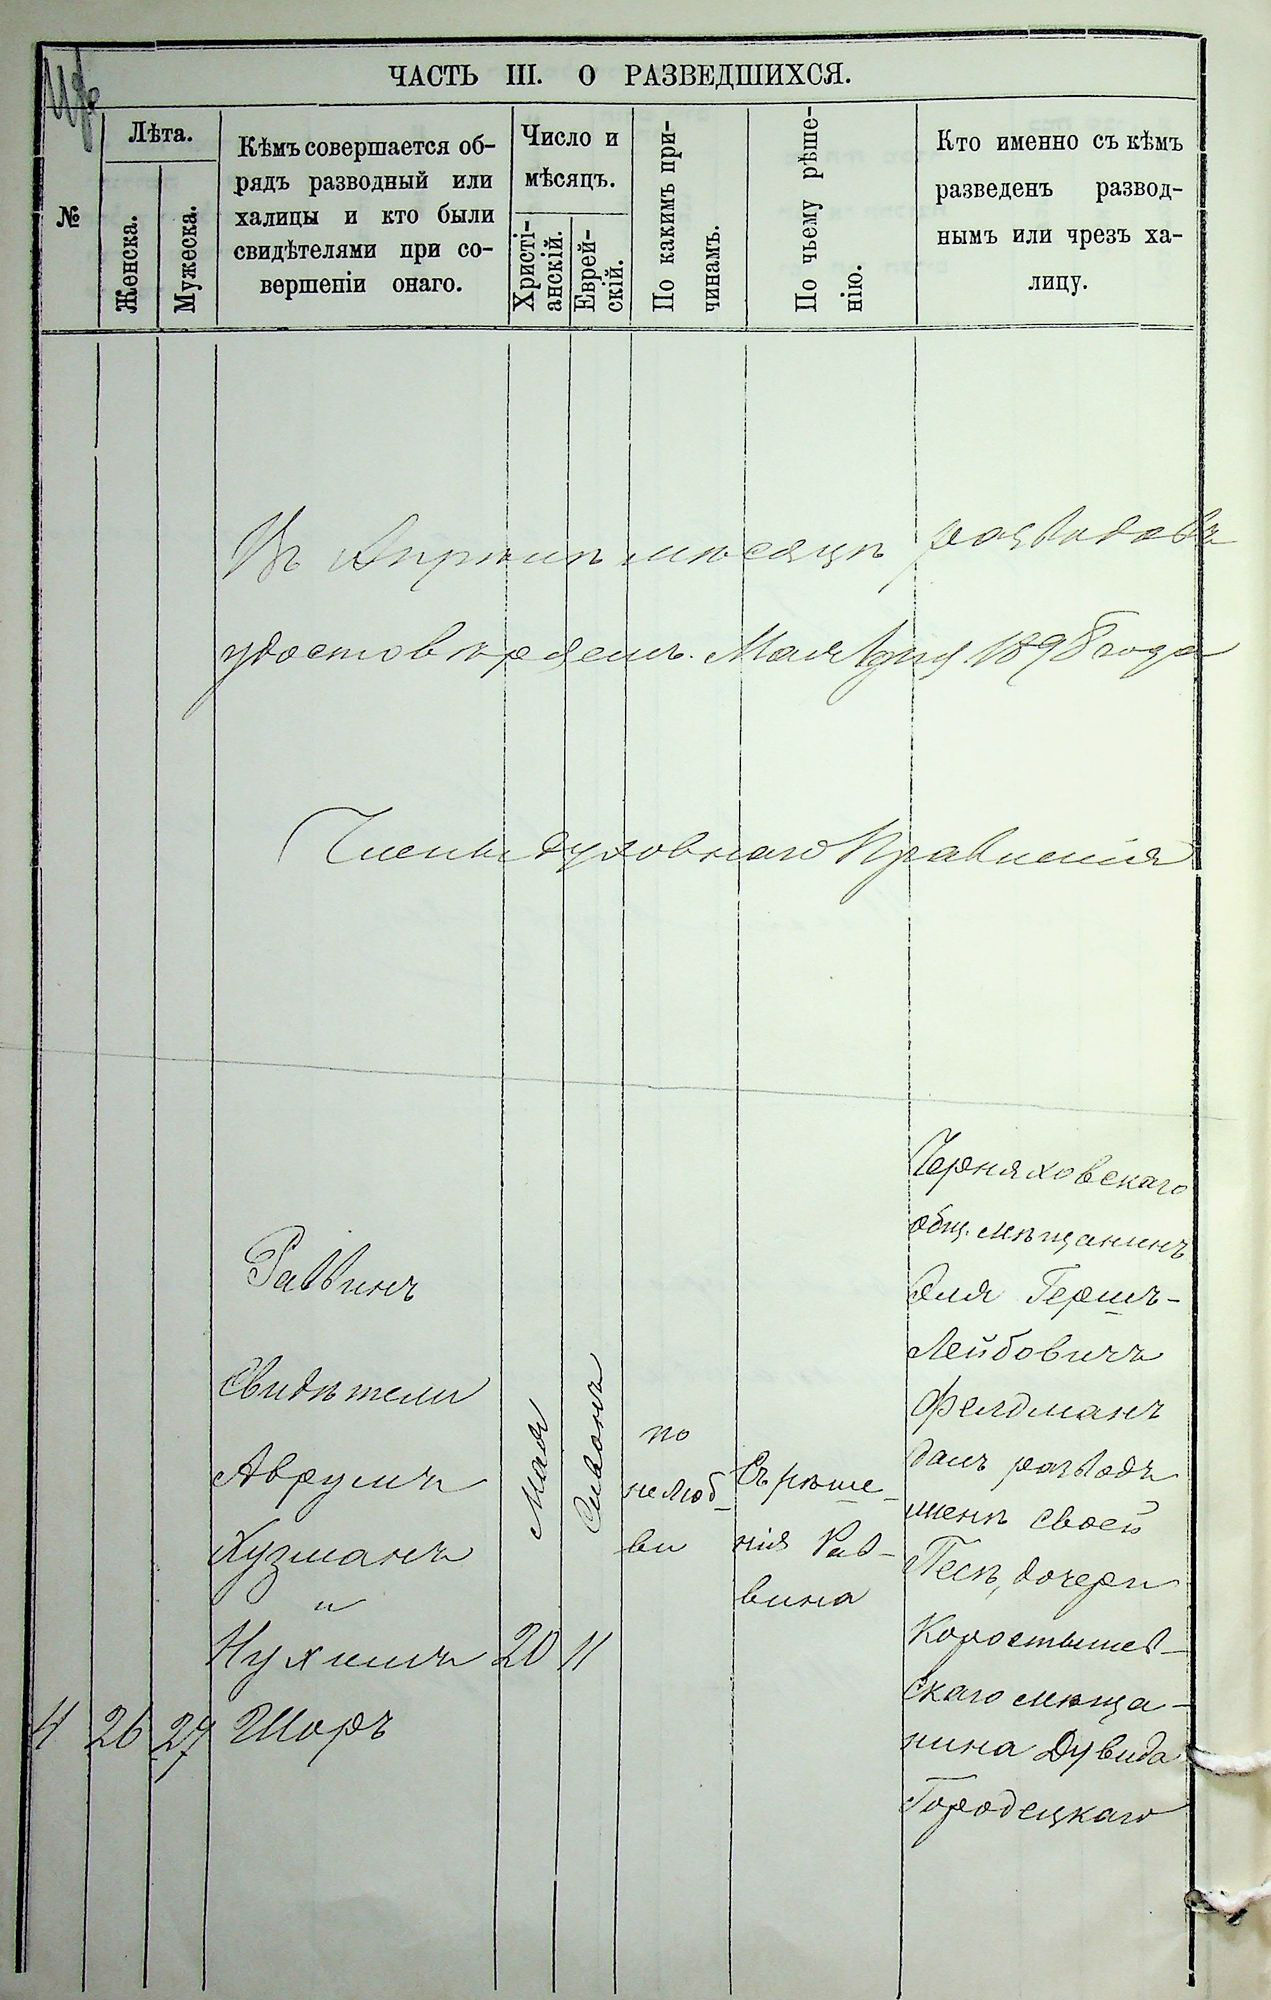 ЧАСТЬ III. О РАЗВЕДШИХСЯ.
№
Лѣта.
Женска.
Мужеска.
Кѣмъ совершается об-
рядъ разводный или
халицы и кто были
свидѣтелями при со-
вершеніи онаго.
Число и
мѣсяцъ.
Христі-
анскій.
Еврей-
скій.
По какимъ при-
чинамъ.
По чьему рѣше-
нію.
Кто именно съ кѣмъ
разведенъ развод-
нымъ или чрезъ ха-
лицу.
Въ Апрѣлѣ мѣсяцѣ разводовъ
удостовѣряемъ. Мая 1898 года
Члены духовнаго Правленія
4
26
27
Раввинъ
Свидѣтели
Аврумъ
Хузманъ
и
Нухимъ
Шоръ
Мая
20
Сивонъ
11
по
нелюб-
ви
Съ рѣше-
нія Рав-
вина
Черняховскаго
общ. мѣщанинъ
Эля Гершъ-
Лейбовичъ
Фелдманъ
далъ разводъ
женѣ своей
Песѣ, дочери
Коростышев-
скаго мѣща-
нина Дувида
Городецкаго